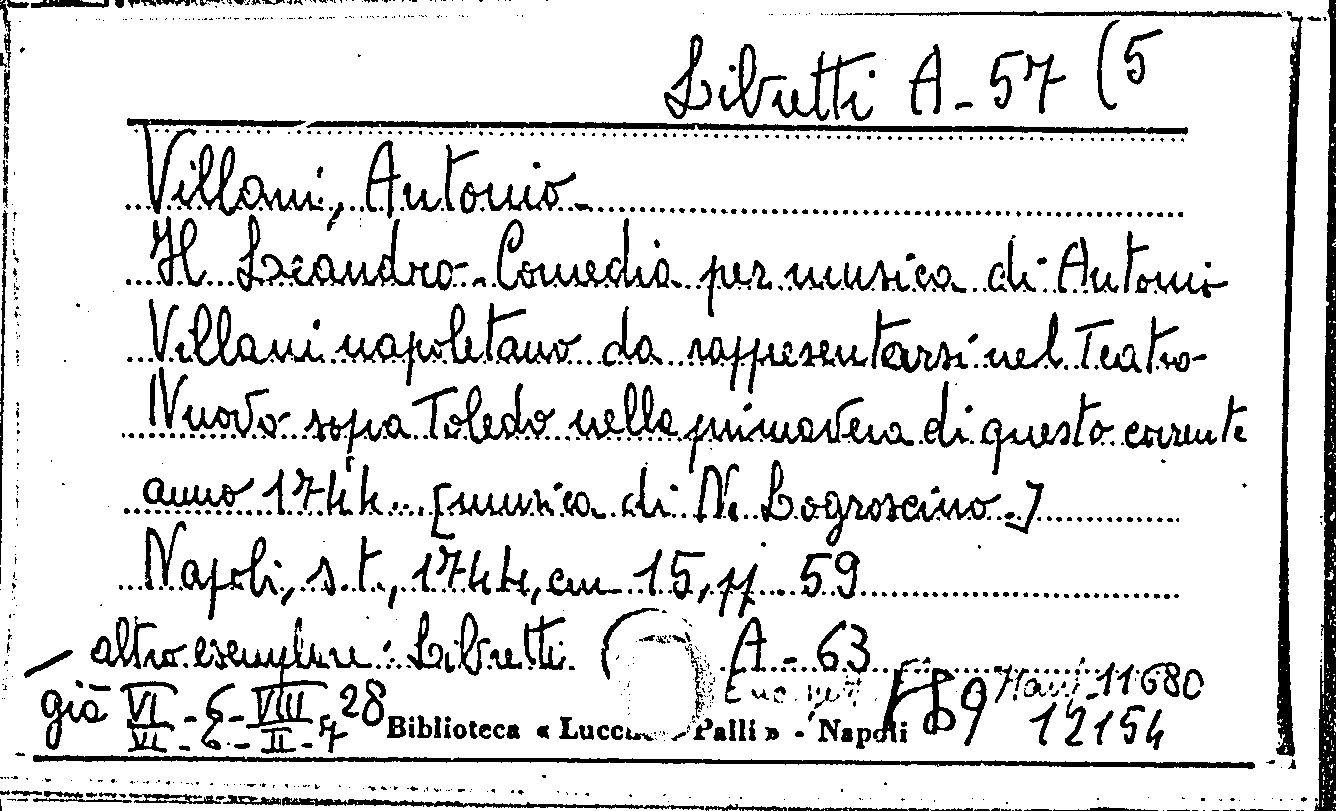 Libretti A - 57 (5
Villani, Antonio -
Il Leandro - Comedia per musica di Antonio
Villani napoletano da rappresentarsi nel Teatro
Nuovo sopra Toledo nella primavera di questo corrente
anno 1744... [musica di N. Logroscino.]
Napoli, s.t., 1744, cm 15, pp. 59
altro esemplare: Libretti A - 63
già VI - 6 - VIII 28
VI - 6 - II - 7
Biblioteca « Lucchesi Palli » - Napoli
11680
12154